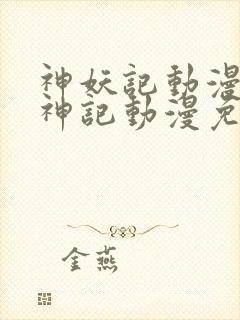 神妖記動漫
神記動漫免
金燕